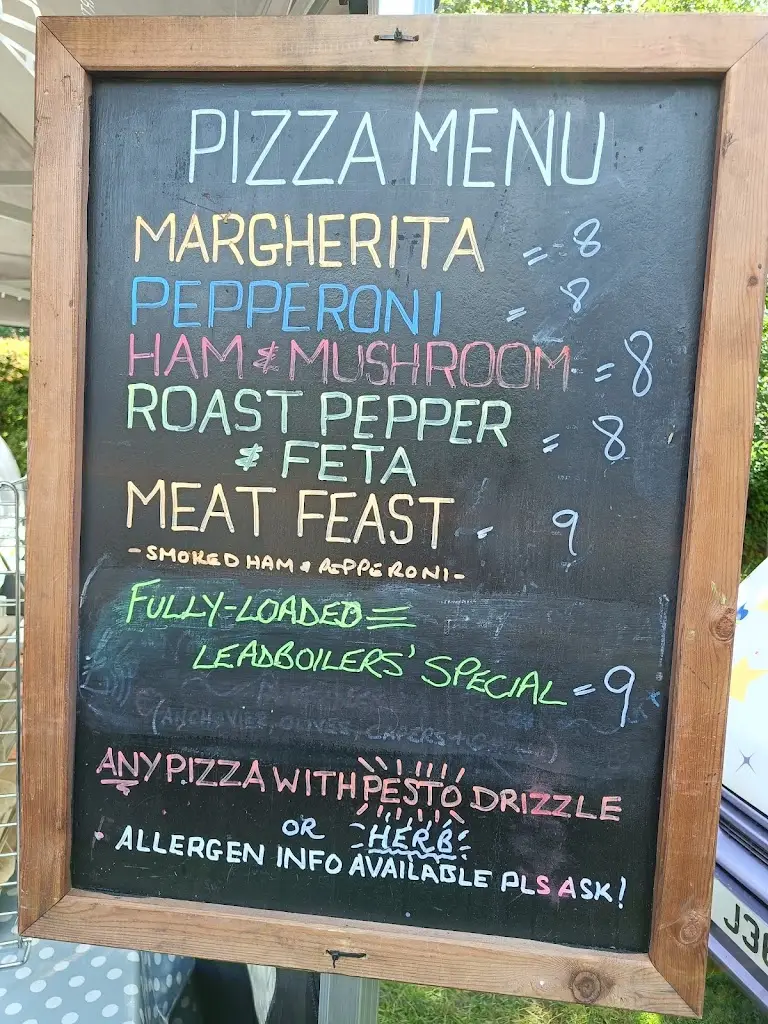 PIZZA MENU
MARGHERITA = 8
PEPPERONI = 8
HAM & MUSHROOM = 8
ROAST PEPPER
& FETA = 8
MEAT FEAST - 9
- SMOKED HAM & PEPPERONI -
FULLY-LOADED =
LEADBOILERS' SPECIAL = 9
(ANCHOVIES, OLIVES, CAPERS +
ANY PIZZA WITH PESTO DRIZZLE
OR HERB
• ALLERGEN INFO AVAILABLE PLS ASK!
J36